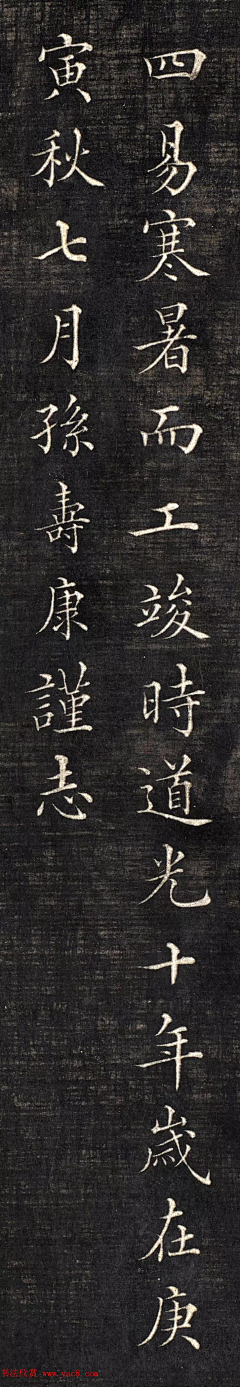 四易寒暑而工竣時道光十年歲在庚
寅秋七月孫壽康謹志
书法欣赏 www.yac8.com